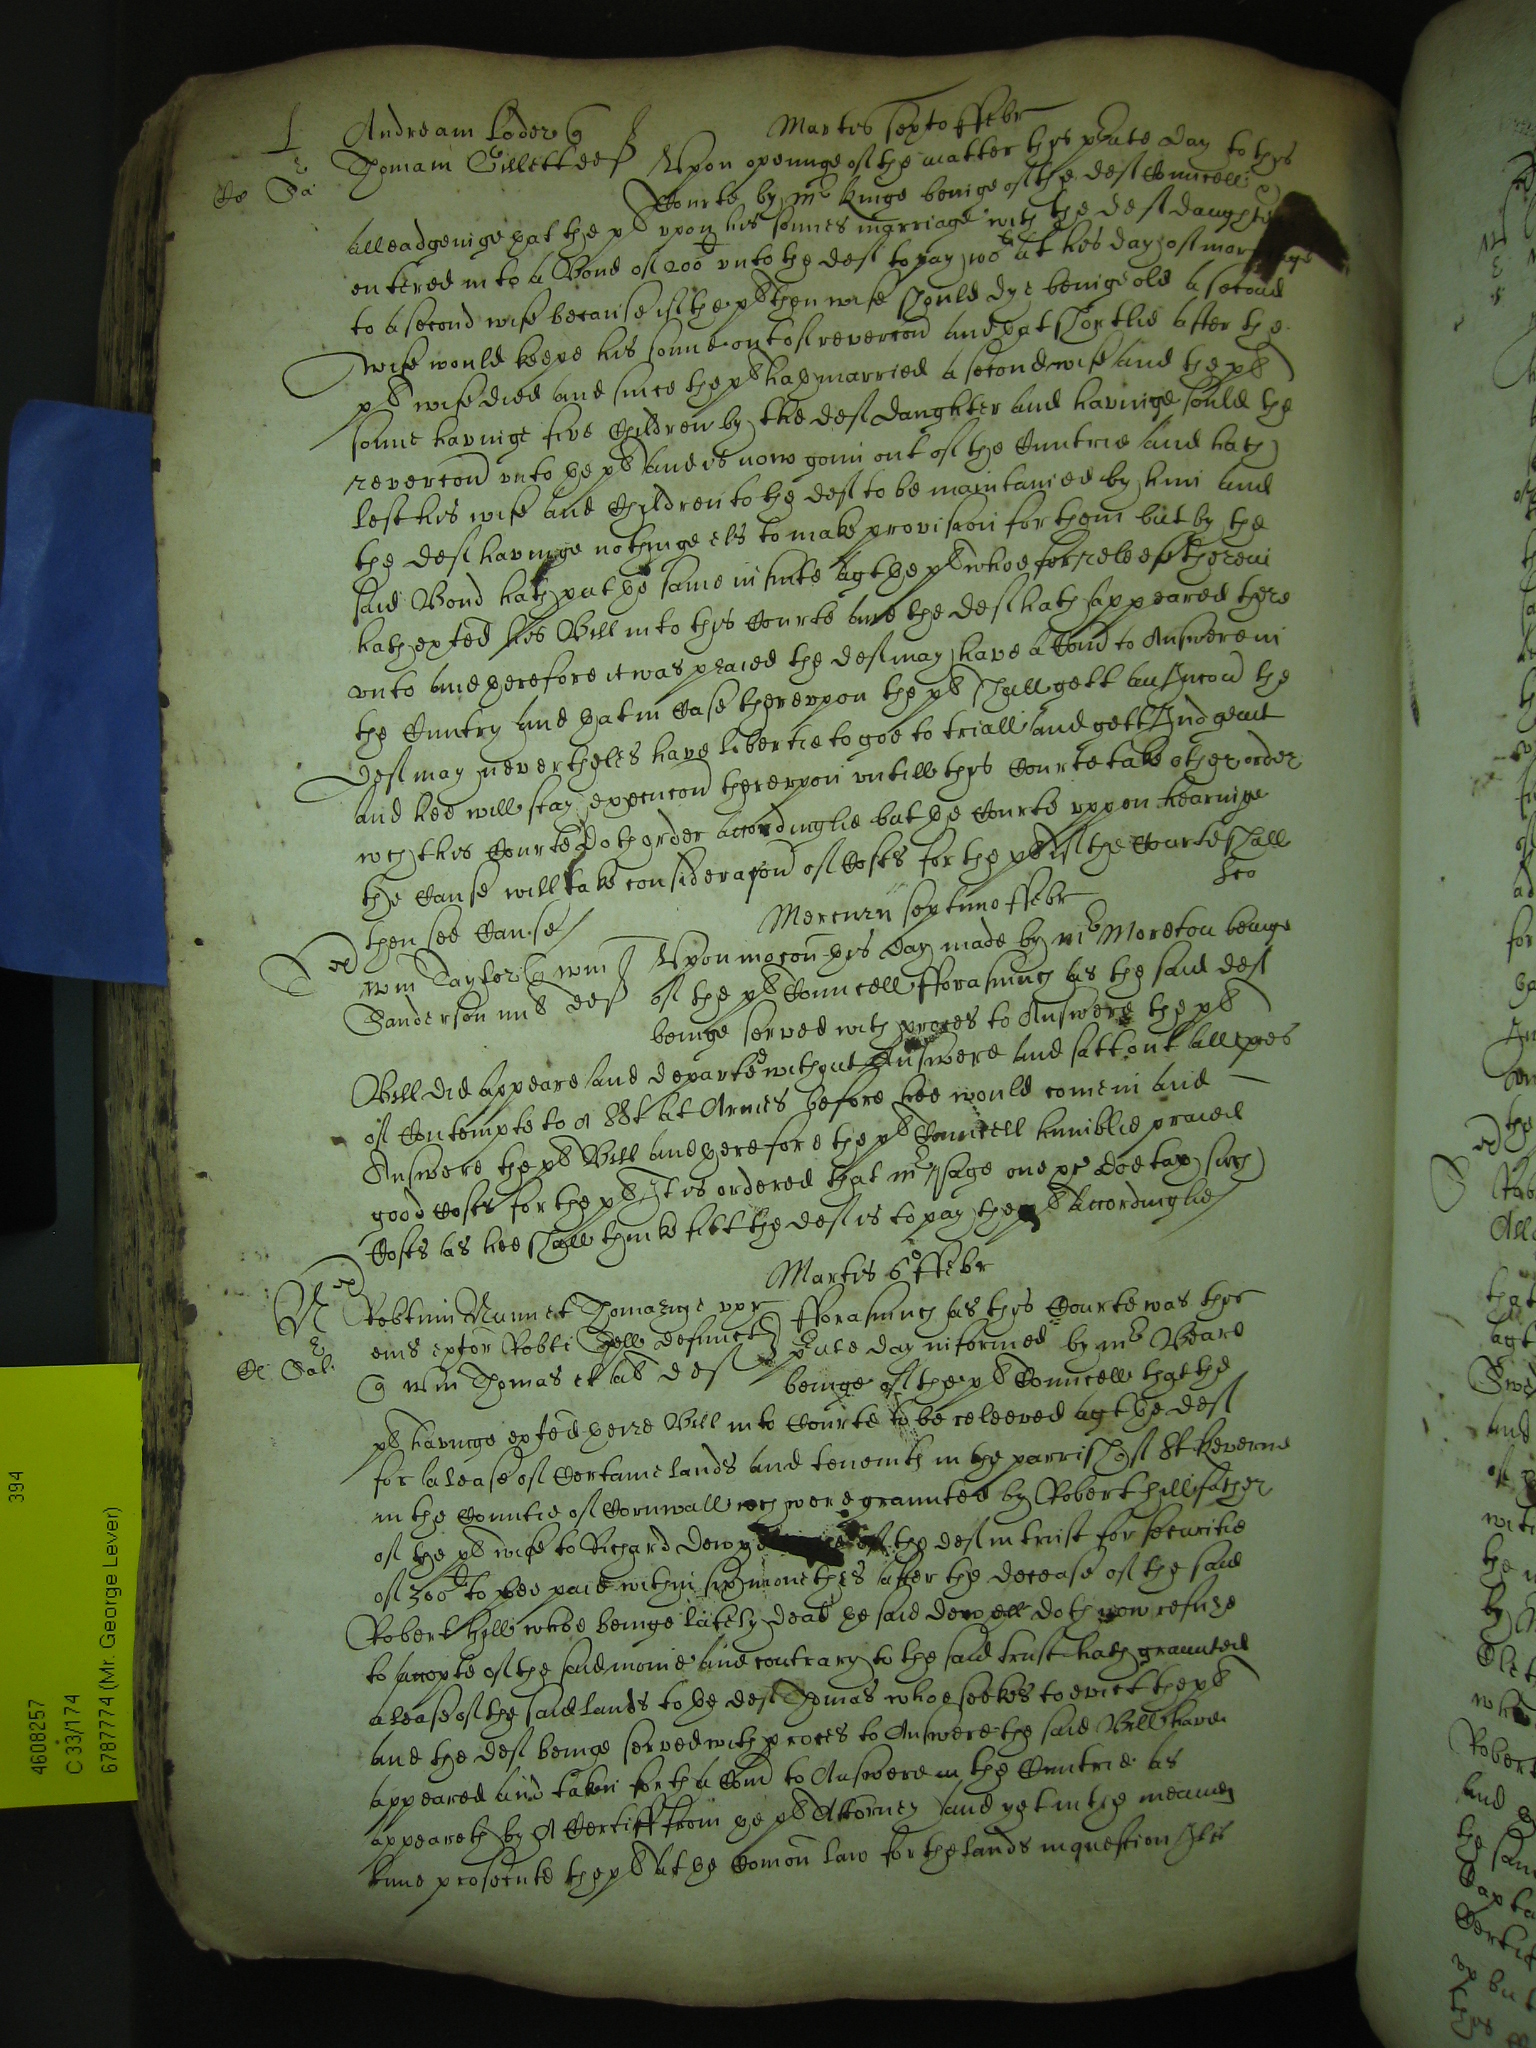 Martis sexto ffebr
L Andream Loder q
Thomam Gillett def Upon openinge of the matter this pnte day to this
Courte by mr Kinge beinge of the def Councell
alleadginge yat the pl upon his sonnes marriage with the def daughter
entered into a Bond of 200li unto the def to pay 100li at his day of marriage
to a second wife because if the pl then wife should dye beinge old a second
wife would keepe his sonne out of revercon and yat shortlie after the
pl wife died and since the pl hath married a second wife and the pl
sonne havinge five Children by the def daughter and havinge sould the
revercon unto ye pl and is now gonn out of the Cuntrie and hath
left his wife and Children to the def to be maintained by him and
the def havinge nothinge els to make provision for them but by the
said Bond hath put ye same in suite agt ye pl whoe for releefe therein
hath exted his Bill into this Courte and the def hath appeared there
unto and therefore it was praied the def may have a Comd to Answere in
the Cuntry and yat in Case thereupon the pl shall gett an Junccon the
def may neverthelesse have libertie to goe to triall and gett Judgemt
and hee will stay execucon thereupon untill this Courte take other order
wch this Courte doth order accordinglie but ye Courte uppon hearinge
the Cause will take consideracon of Costs for the pl if the Courte shall
then see Cause
Mercurii septimo ffebr
Wm Taylor q Wm Upon mocon this day made by mr Moreton beinge
Sanderson mil def of the pl Councell fforasmuch as the said def
beinge served with proces to Answere the pl
Bill did appeare and departed without Answere and satt out all pces
of Contempte to a Sst at Armes before hee would come in and
Answere the pl Bill and therefore the pl Councell humblie praied
good Costs for the pl It is ordered that mr Page one &c doe tax such
Costs as hee shall thinke fitt the def is to pay the pl accordinglie
Martis 6o ffebr
N Robtum Nunn et Thomazine uxr fforasmuch as this Courte was this
eius extor Robti Hill defunct pnte day informed by mr Beare
q Wm Thomas et al def beinge of the pl Councell that the
pl havinge exted theire Bill into Courte to be releeved agt ye def
for a lease of Certaine lands and tenemts in the parrish of St Keverne
in the Countie of Cornwall wch were graunted by Robert Hill father
of the pl wife to Richard Dewen of the def in trust for securitie
of 300li to bee paid within six monethes after the decease of the said
Robert Hill whoe beinge lately dead ye said Dewen doth now refuse
to accepte of the said monie and contrary to the said trust hath graunted
a lease of the said lands to ye def Thomas whoe seekes to evict the pl
and the def beinge served with proces to Answere the said Bill have
appeared and taken forth a Comd to Answere in the Cuntrie as
appeareth by A Certiff from ye pl Attorney and yet in the meane
time prosecute the pl at ye Comon law for the lands in question It is
394
4608257
C 33/174
6787774 (Mr. George Lever)